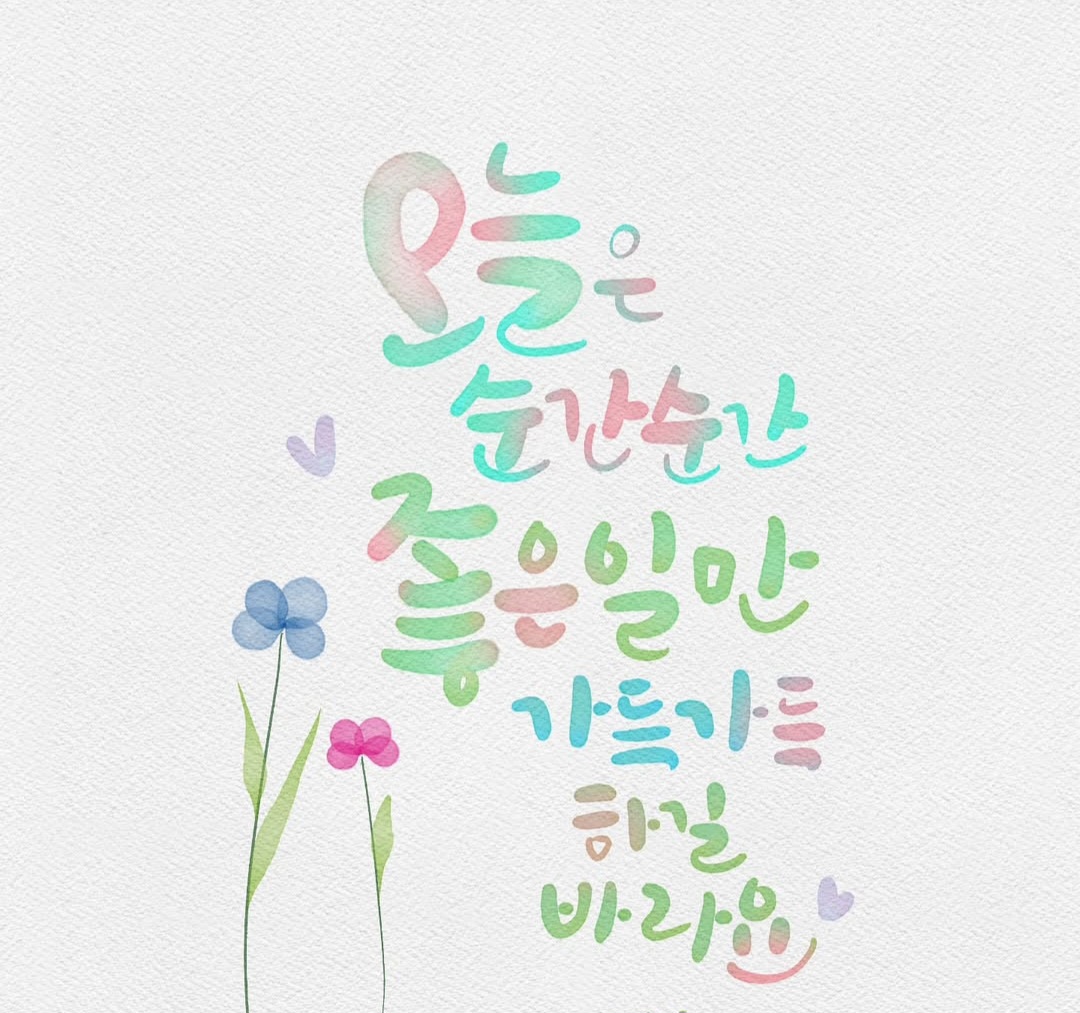 오늘은
순간순간
좋은일만
가득가득
하길
바라요